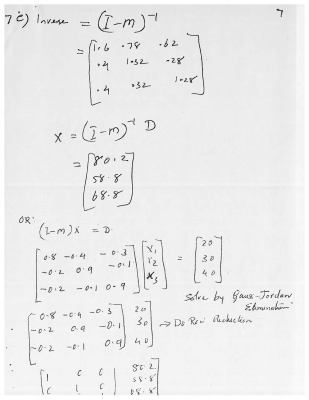 7
7 c) Inverse = (I-m)⁻¹
= [1.6 .78 .62
.4 1.32 .28
.4 .32 1.28]
X = (I-m)⁻¹ D
= [80.2
58.8
68.8]
OR:
(I-m)X = D
[0.8 -0.4 -0.3
-0.2 0.9 -0.1
-0.2 -0.1 0.9] [X1 X2 X3] = [20 30 40]
Solve by Gauss-Jordan
Elimination
[0.8 -0.4 -0.3 | 20
-0.2 0.9 -0.1 | 30 → Do Row Reduction
-0.2 -0.1 0.9 | 40]